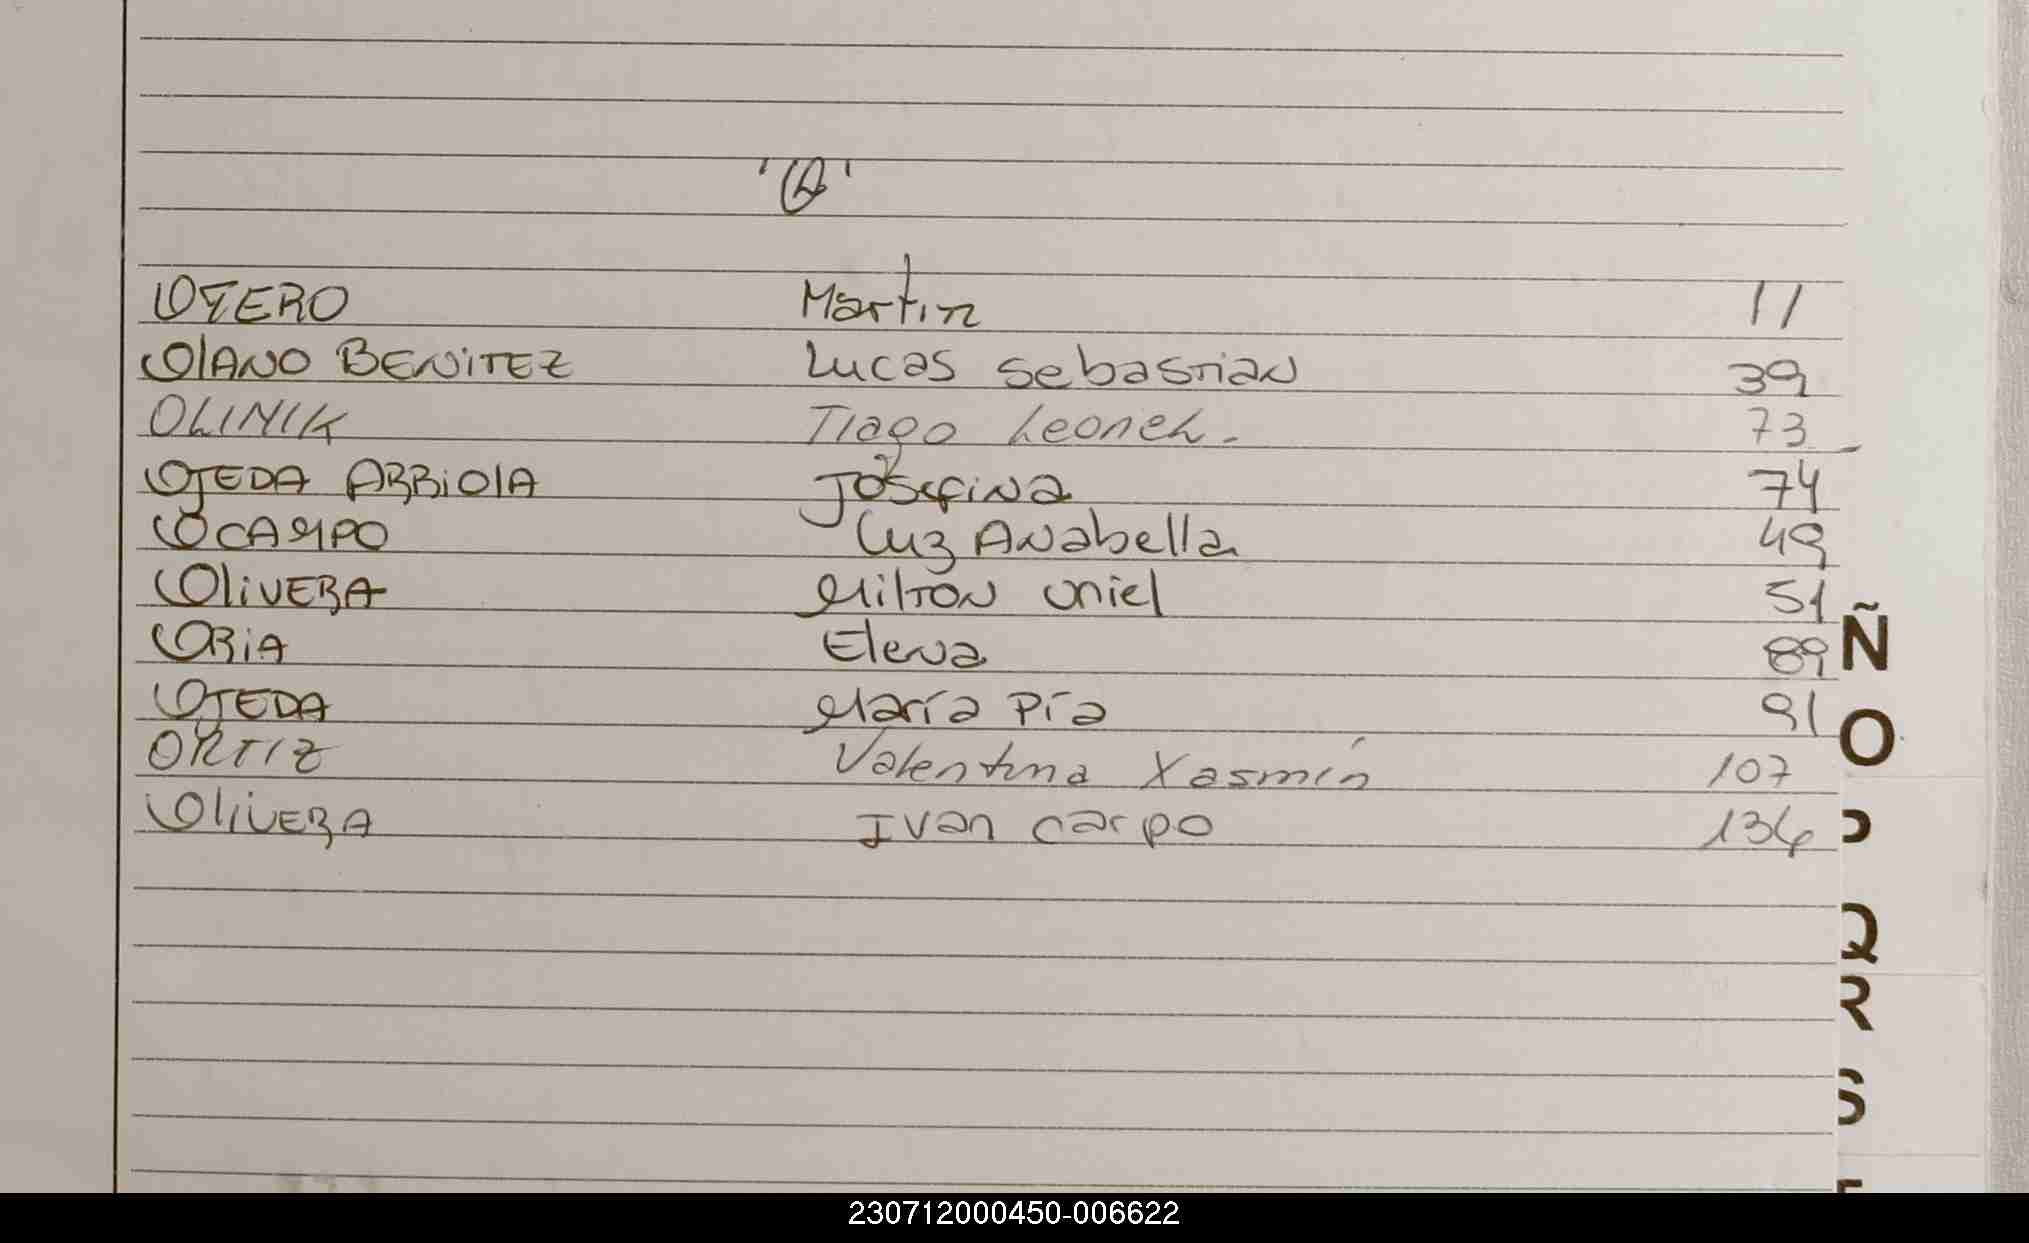 'O'
OTERO Martin 11
OlANO BENiTEZ Lucas Sebastian 39
OLINIK Tiago Leonel. 73
OJEDA ARRiOlA Josefina 74
OCAMPO Luz Anabella 49
OliVERA Milton Uriel 51
ORiA Elena 89
Ñ
OJEDA María Pía 91
O
ORTIZ Valentina Yasmín 107
OliVERA Ivan Carpo 134
P
Q
R
S
T
230712000450-006622